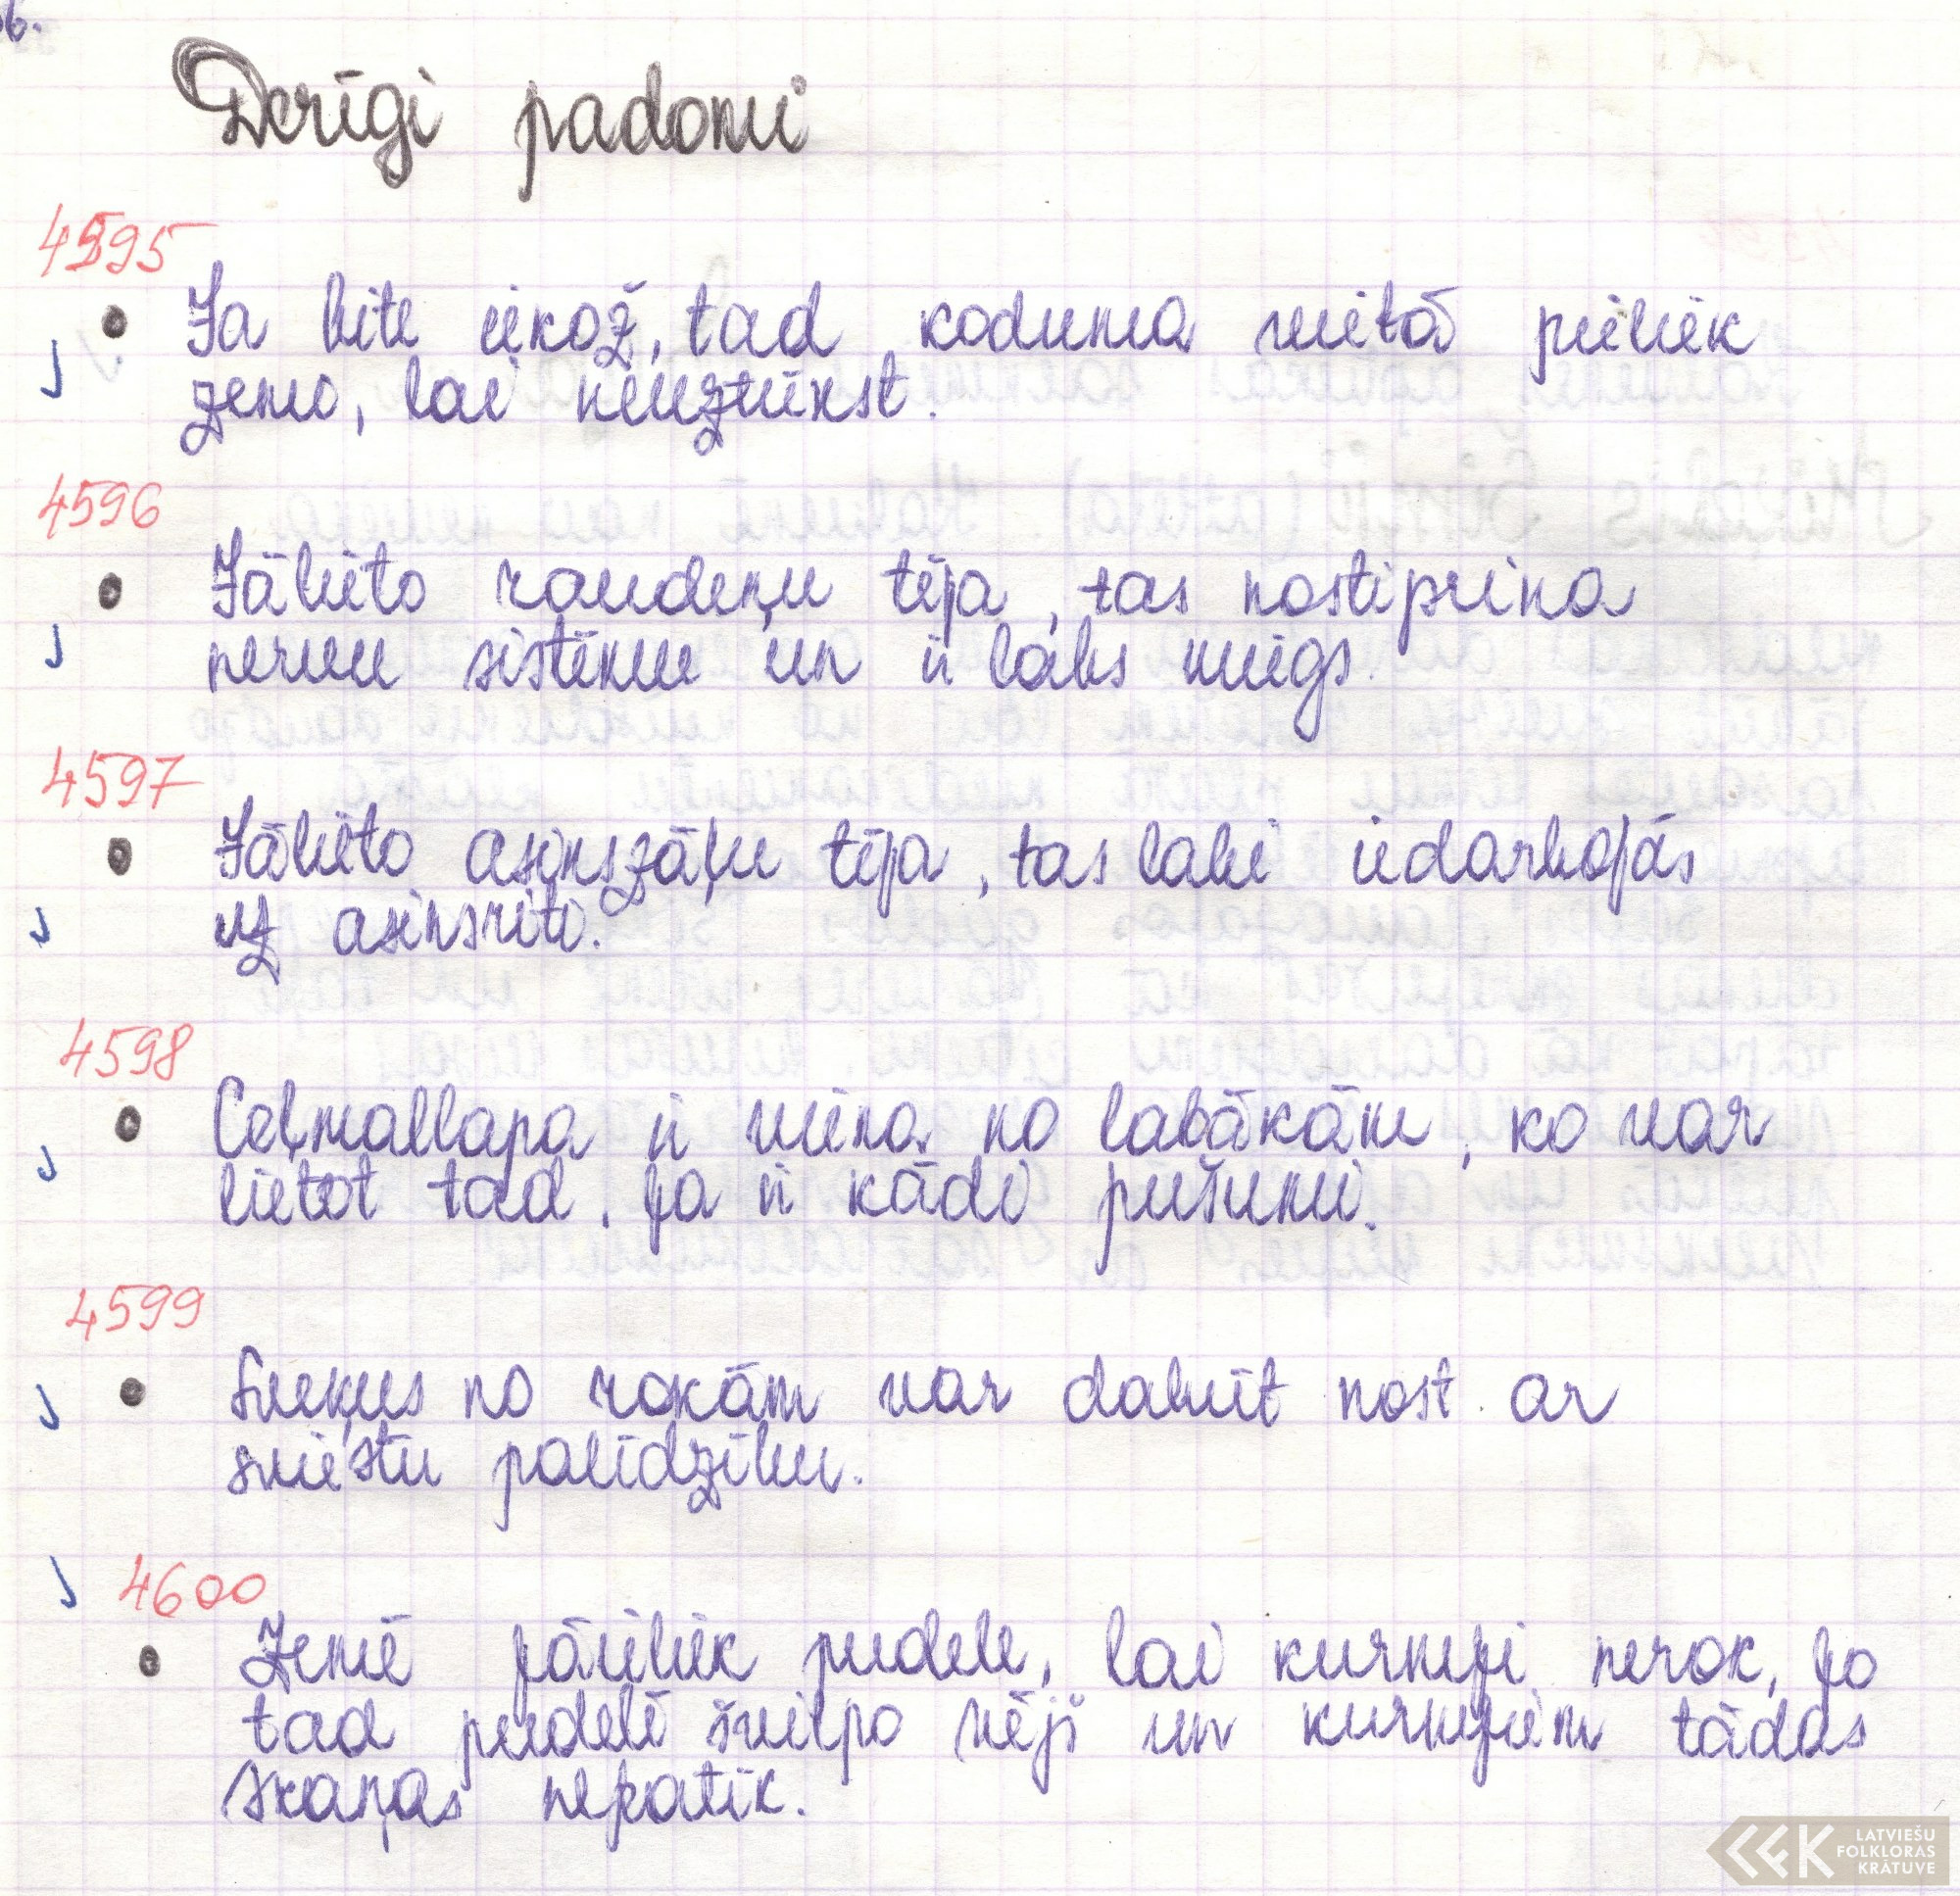 6.
Derīgi padomi
4595
Ja bite iekož, tad koduma vietā pieliek
zemi, lai neuztūkst.
4596
Jālieto raudeņu tēja, tas nostiprina
nervu sistēmu un ir labs miegs.
4597
Jālieto asinszāļu tēja, tas labi iedarbojās
uz asinsriti.
4598
Ceļmallapa ir viena no labākām, ko var
lietot tad, ja ir kādi pušumi.
4599
Sveķus no rokām var dabūt nost ar
sviestu palīdzību.
4600
Zemē jāieliek pudele, lai kurmji nerok, jo
tad pudelē švilpo vēji un kurmjiem tādas
skaņas nepatīk.
LATVIEŠU
FOLKLORAS
KRĀTUVE